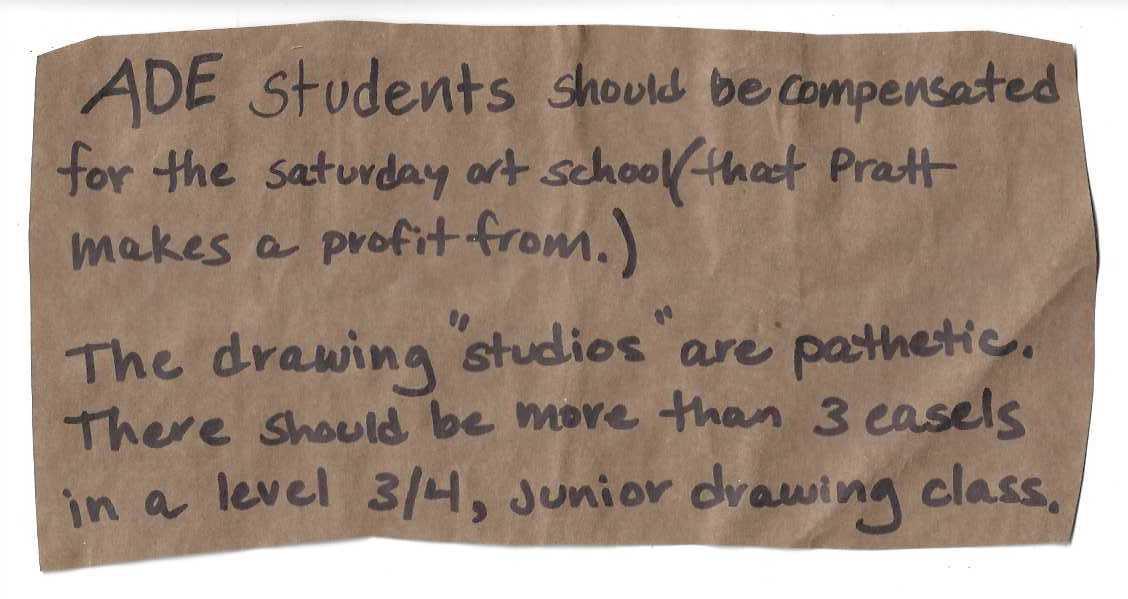 ADE students should be compensated
for the saturday art school (that Pratt
makes a profit from.)
The drawing "studios" are pathetic.
There should be more than 3 easels
in a level 3/4, junior drawing class.